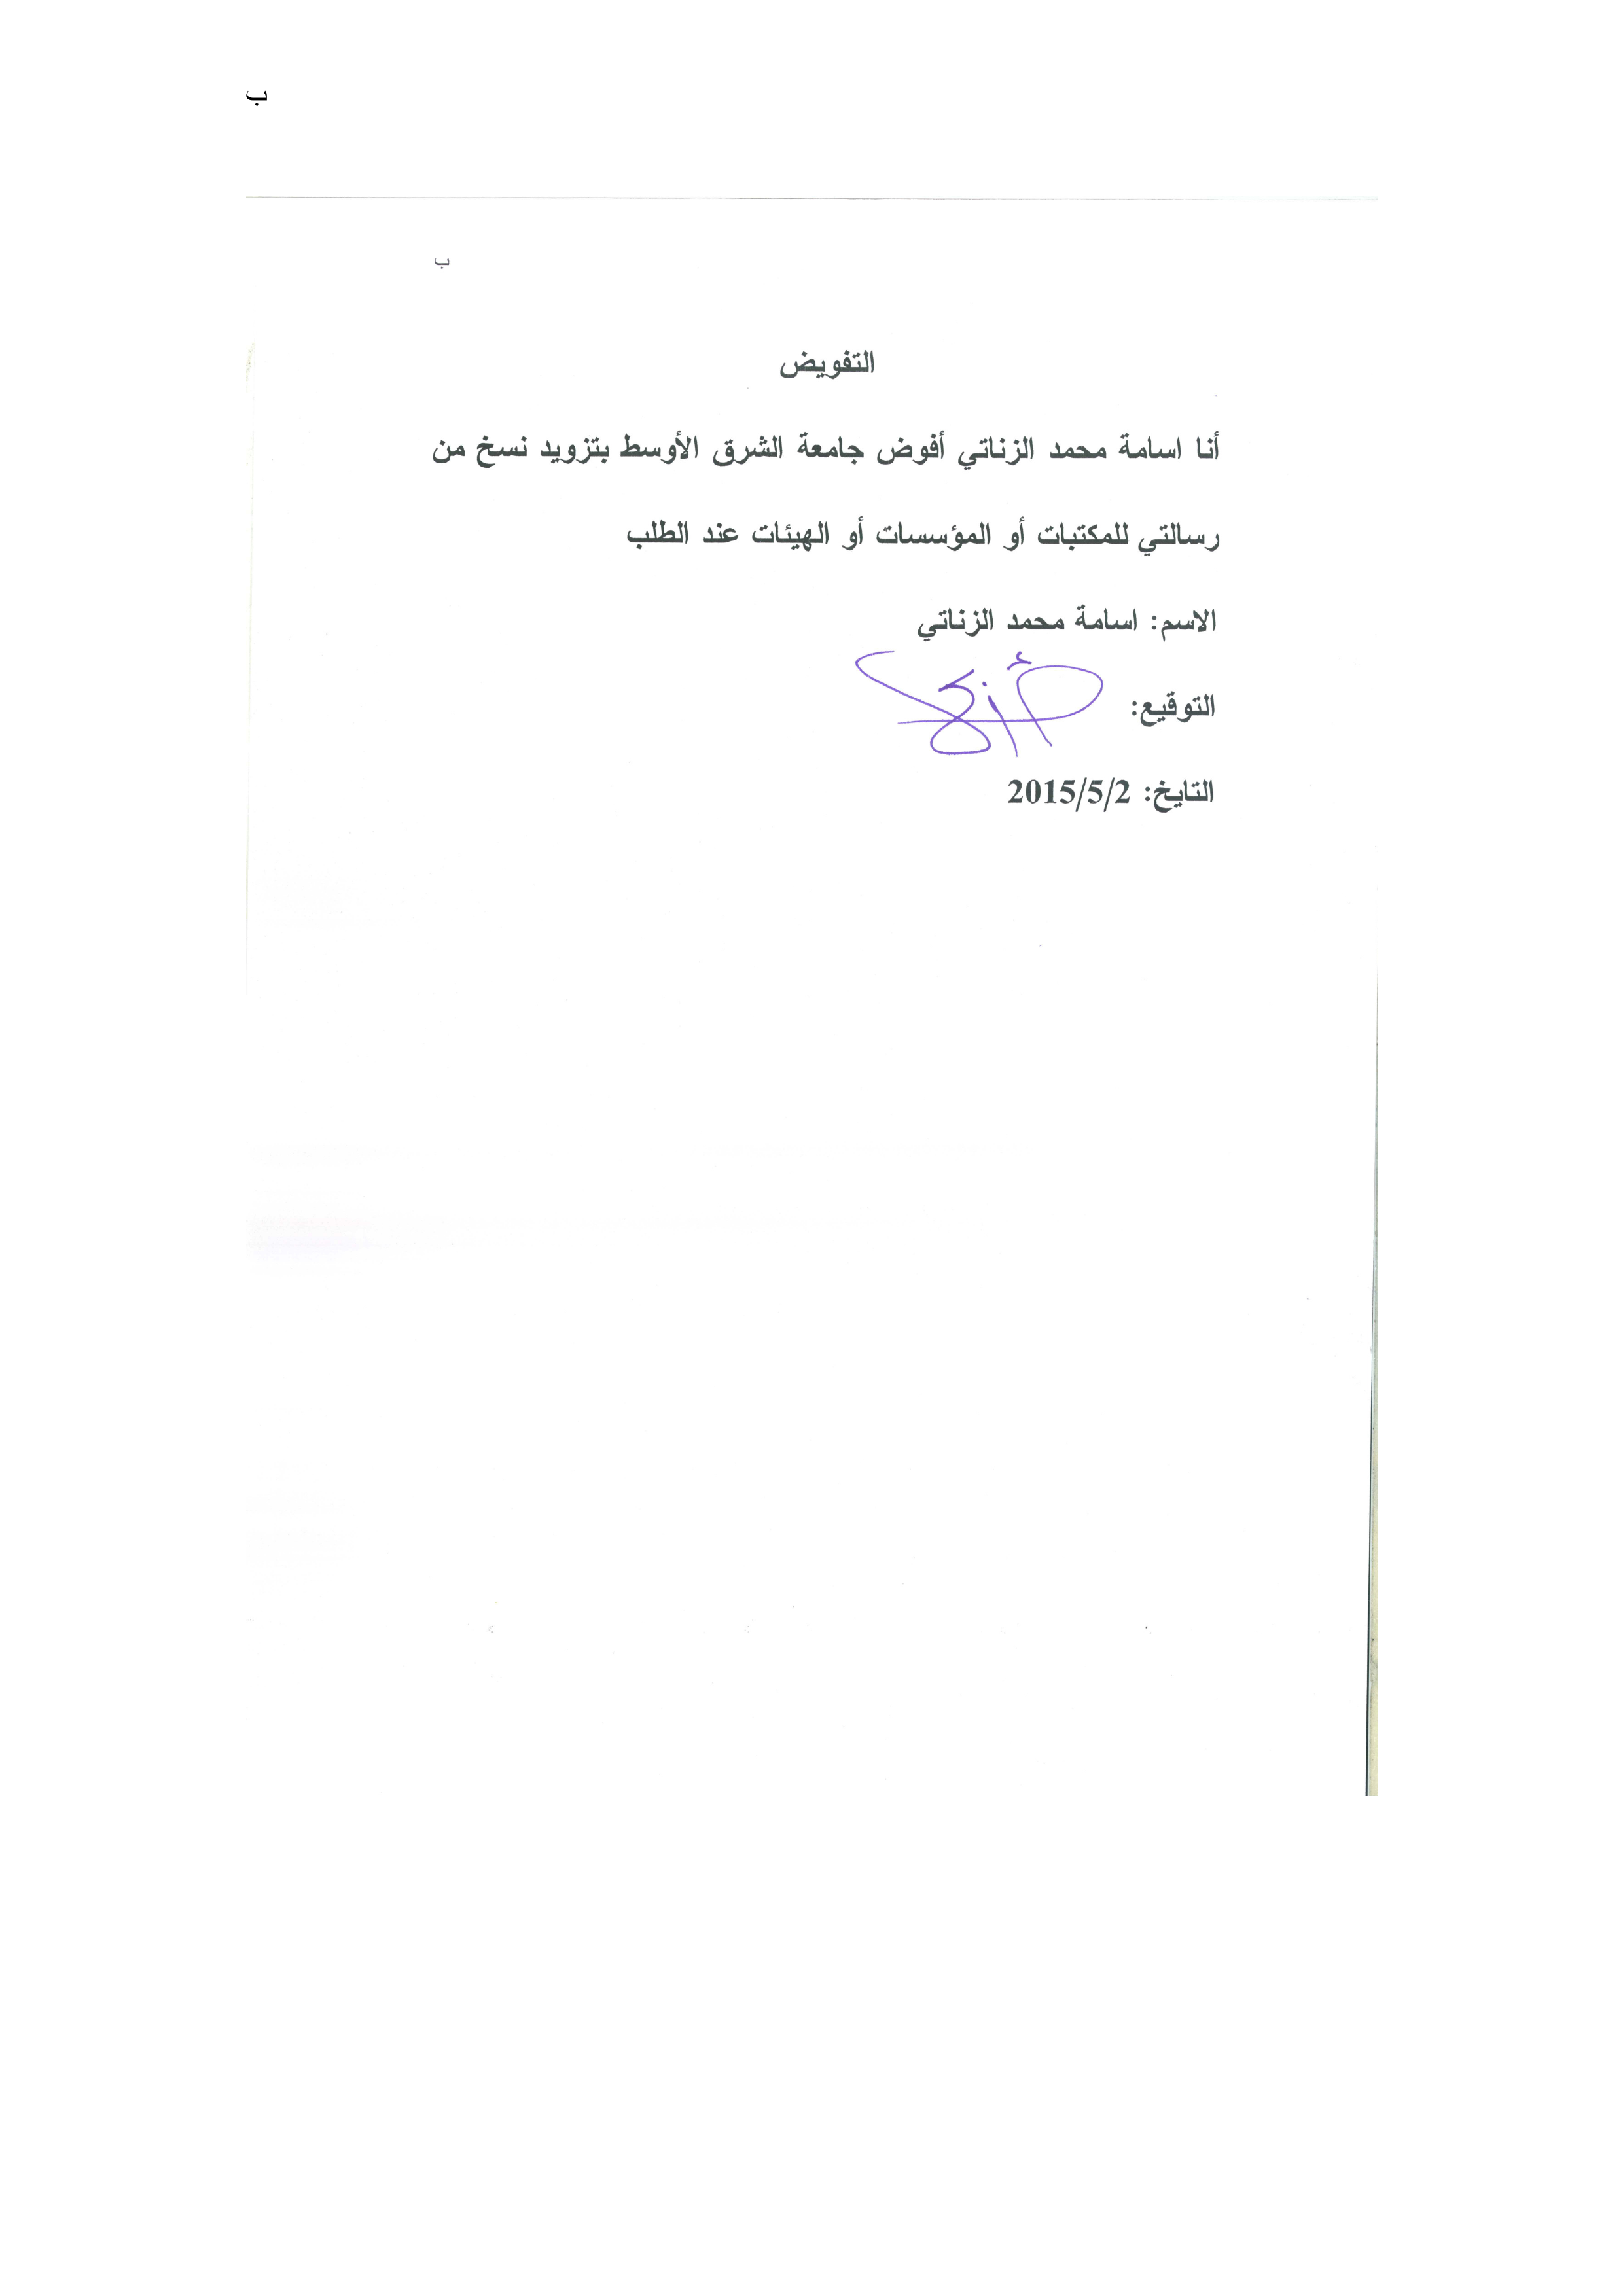 ب
ب
التفويض
أنا اسامة محمد الزناتي أفوض جامعة الشرق الأوسط بتزويد نسخ من
رسالتي للمكتبات أو المؤسسات أو الهيئات عند الطلب
الاسم: اسامة محمد الزناتي
التوقيع:
التايخ: 2015/5/2